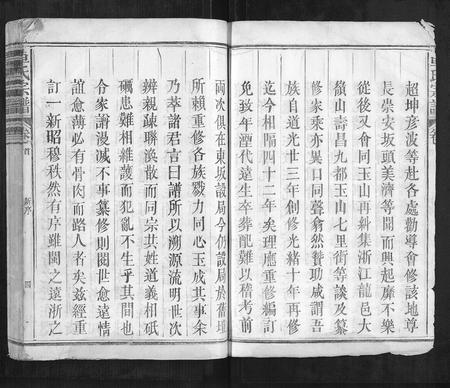 超坤彦波等赴各處勸導會修該地尊
長崇安坂頭美濟等聞而興起靡不樂
從後又會同玉山再糾集浙江龍邑大
嶺山壽昌九都玉山七里街等談及纂
修家乘亦異口同聲翕然贊功咸謂吾
族自道光廿三年創修光緒十年再修
迄今相隔四十二年矣理應重修編訂
免致年湮代遠生卒葬配難以稽考前
兩次俱在東坂設局今仍設局於舊壇
所賴重修各族戮力同心玉成其事余
乃萃諸君言曰譜所以溯源流明世次
辨親疎聯渙散而同宗共姓道義相砥
礪患難相維護而犯亂不生乎其間也
令家譜漫滅不事纂修則閱世愈遠情
誼愈薄必有骨肉而路人者矣茲經重
訂一新昭穆秩然有序雖閩之遠浙之
車氏宗譜
卷首
新序
四